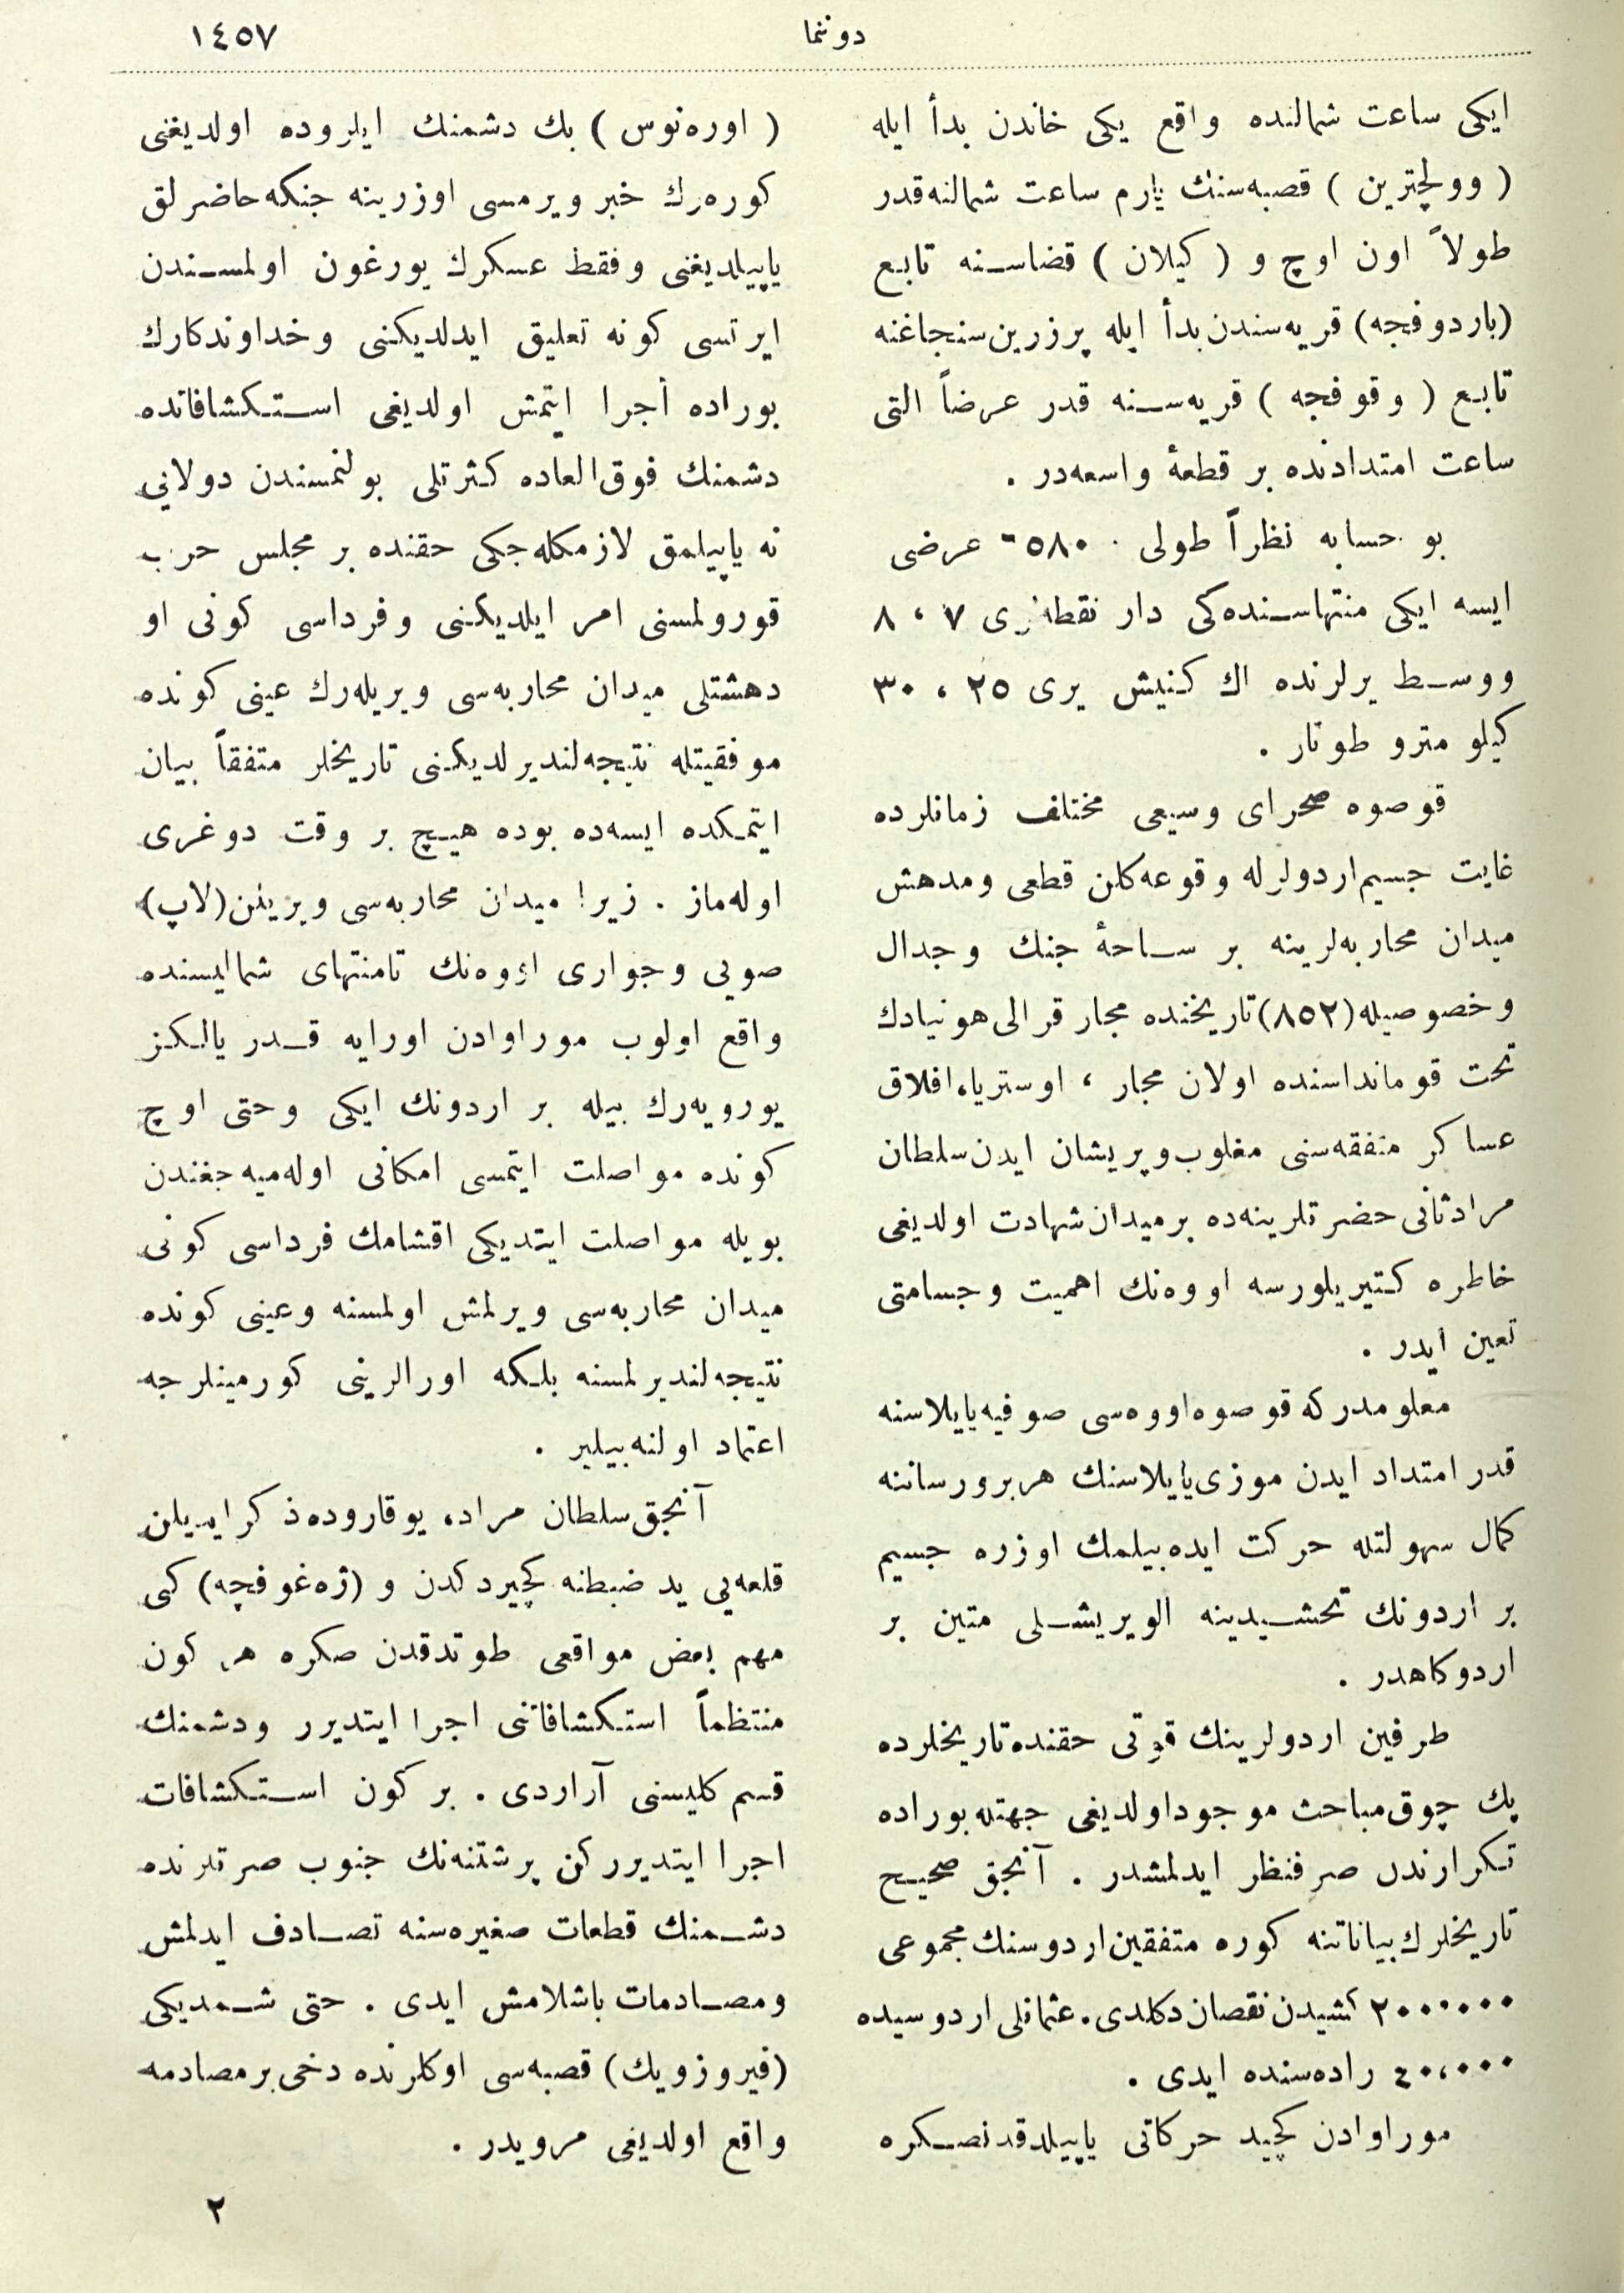 دوننما
١٤٥٧
ايكى ساعت شمالنده واقع يكى خاندن بدأ ايله
( وولچترين ) قصبه‌سنك يارم ساعت شمالنه قدر
طولاً اون اوچ و ( كيلان ) قضاسنه تابع
(باردوفجه) قريه‌سندن بدأ ايله پرزرين سنجاغنه
تابع ( وقوفجه ) قريه‌سنه قدر عرضاً التى
ساعت امتدادنده بر قطعۀ واسعه‌در .
بو حسابه نظراً طولى ٥٨٠ عرضى
ايسه ايكى منتهاسنده‌كى دار نقطه‌لرى ٧ ، ٨
ووسط يرلرنده اك كنيش يرى ٢٥ ، ٣٠
كيلو مترو طوتار .
قوصوه صحراى وسيعى مختلف زمانلرده
غايت جسيم اردولرله وقوعه كلن قطعى ومدهش
ميدان محاربه‌لرينه بر ساحۀ جنك وجدال
وخصوصيله (٨٥٢) تاريخنده مجار قرالى هونيادك
تحت قومانداسنده اولان مجار ، اوستريا، افلاق
عساكر متفقه‌سنى مغلوب وپريشان ايدن سلطان
مراد ثانى حضرتلرينه‌ده بر ميدان شهادت اولديغى
خاطره كتيريلورسه اووه‌نك اهميت وجسامتى
تعين ايدر .
معلومدركه قوصوه اووه‌سى صوفيه يايلاسنه
قدر امتداد ايدن موزى يايلاسنك هر بر ورساننه
كمال سهولتله حركت ايده بيلمك اوزره جسيم
بر اردونك تحشيدينه الويريشلى متين بر
اردوكاهدر .
طرفين اردولرينك قوتى حقنده تاريخلرده
پك چوق مباحث موجود اولديغى جهتله بوراده
تكرارندن صرفنظر ايدلمشدر . آنجق صحيح
تاريخلرك بياناتنه كوره متفقين اردوسنك مجموعى
٢٠٠٠٠٠٠ كشيدن نقصان دكلدى. عثمانلى اردوسيده
٤٠،٠٠٠ راده‌سنده ايدى .
موراوادن كچيد حركاتى ياپيلدقدنصكره
( اوره‌نوس ) بك دشمنك ايلروده اولديغنى
كوره‌رك خبر ويرمسى اوزرينه جنكه حاضرلق
ياپيلديغنى وفقط عسكرك يورغون اولمسندن
ايرتسى كونه تعليق ايدلديكنى وخداوندكارك
بوراده أجرا ايتمش اولديغى استكشافاتده
دشمنك فوق العاده كثرتلى بولنمسندن دولايى
نه ياپيلمق لازمكله‌جكى حقنده بر مجلس حرب
قورولمسنى امر ايلديكنى وفرداسى كونى او
دهشتلى ميدان محاربه‌سى ويريله‌رك عينى كونده
موفقيتله نتيجه‌لنديرلديكنى تاريخلر متفقاً بيان
ايتمكده ايسه‌ده بوده هيچ بر وقت دوغرى
اوله‌ماز . زيرا ميدان محاربه‌سى ويريلن (لاپ)
صويى وجوارى اووه‌نك تامنتهاى شماليسنده
واقع اولوب موراوادن اورايه قدر يالكز
يورويه‌رك بيله بر اردونك ايكى وحتى اوچ
كونده مواصلت ايتمسى امكانى اوله‌ميه جغندن
بويله مواصلت ايتديكى اقشامك فرداسى كونى
ميدان محاربه‌سى ويرلمش اولمسنه وعينى كونده
نتيجه‌لنديرلمسنه بلكه اورالرينى كورمينلرجه
اعتماد اولنه بيلير .
آنجق سلطان مراد، يوقاروده ذكر ايديلن
قلعه‌يى يد ضبطنه كچيردكدن و (ژه‌غوفچه) كبى
مهم بعض مواقعى طوتدقدن صكره هر كون
منتظماً استكشافاتنى اجرا ايتديرر ودشمنك
قسم كليسنى آراردى . بر كون استكشافات
اجرا ايتديرركن پرشتنه‌نك جنوب صرتلرنده
دشمنك قطعات صغيره‌سنه تصادف ايدلمش
ومصادمات باشلامش ايدى . حتى شمديكى
(فيروزويك) قصبه‌سى اوكلرنده دخى بر مصادمه
واقع اولديغى مرويدر .
٢